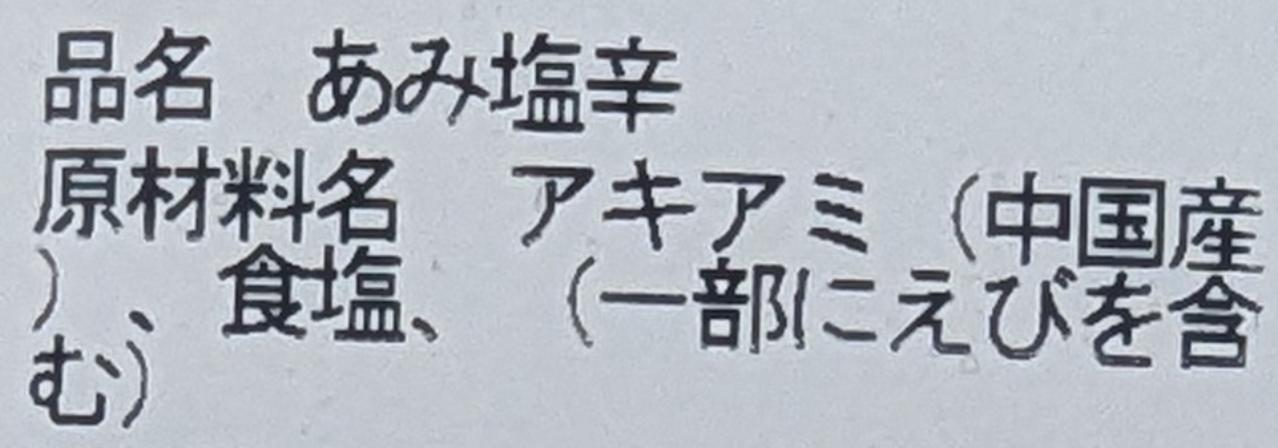 品名　あみ塩辛
原材料名　アキアミ（中国産
）、食塩、（一部にえびを含
む）